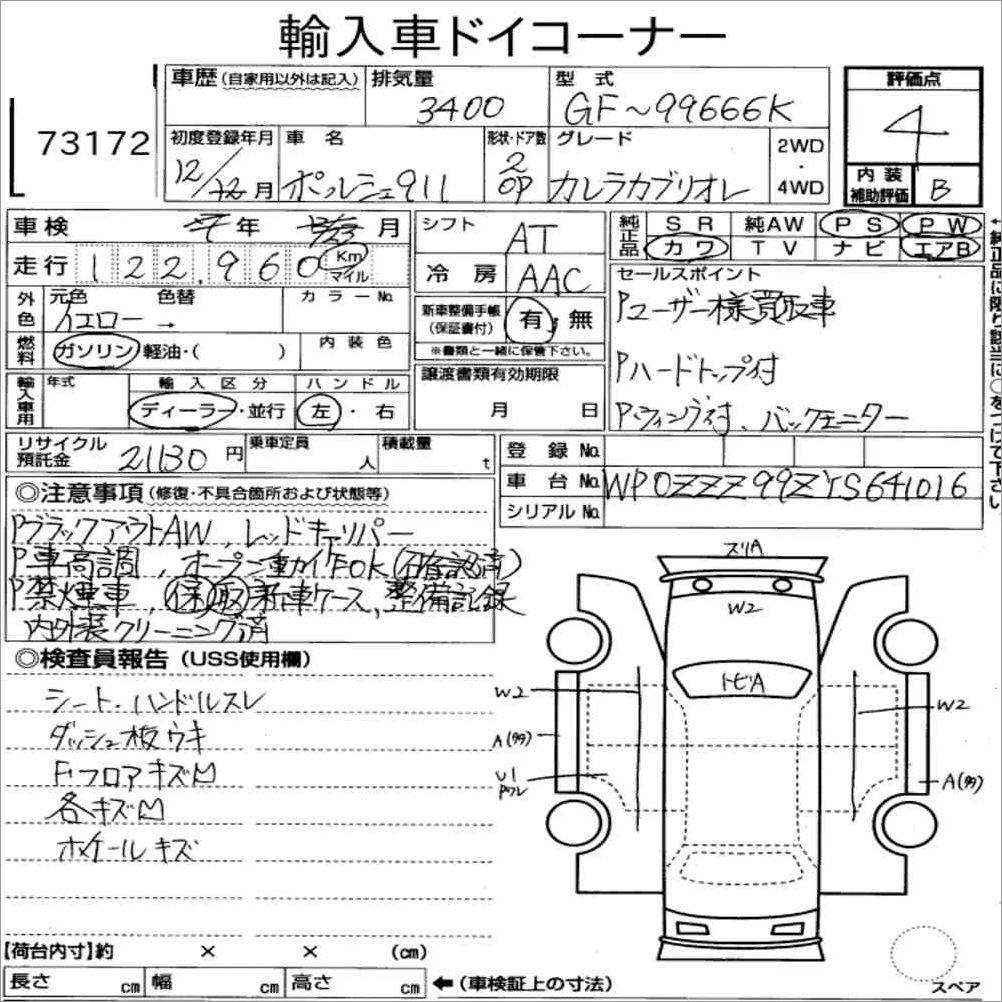 輸入車ドイコーナー
73172
車歴(自家用以外は記入) 排気量 3400 型式 GF~99666K
評価点 4
初度登録年月 12/12月 車名 ポルシェ911 形状・ドア数 2 OP グレード カレラカブリオレ 2WD・4WD
内装補助評価 B
車検 年 月
走行 122,960 Km マイル
外色 元色 イエロー → 色替 カラーNo.
燃料 ガソリン・軽油・( ) 内装色
輸入車用 年式 輸入区分 ディーラー・並行 ハンドル 左・右
シフト AT
冷房 AAC
新車整備手帳(保証書付) 有・無
※書類と一緒に保管下さい。
譲渡書類有効期限
月 日
純正品 SR 純AW PS PW
カワ TV ナビ エアB
←純正品に限り該当に○をつけて下さい
セールスポイント
Pユーザー様買取車
Pハードトップ付
Pウィング付、バックモニター
リサイクル預託金 21130円 乗車定員 人 積載量 t
登録No.
車台No. WP0ZZZ99ZYS641016
シリアルNo.
◎注意事項(修復・不具合箇所および状態等)
PブラックアウトAW、レッドキャリパー
P車高調、オープン動作OK(確認済)
P禁煙車、保取新車ケース、整備記録
内外装クリーニング済
◎検査員報告(USS使用欄)
シート・ハンドルスレ
ダッシュ板ウキ
Fフロアキズ
各キズ
ホイールキズ
スリA
W2
トビA
W2
W2
A(タタ)
U1
A(タタ)
【荷台内寸】約 × × (cm)
長さ cm 幅 cm 高さ cm ←(車検証上の寸法)
スペア